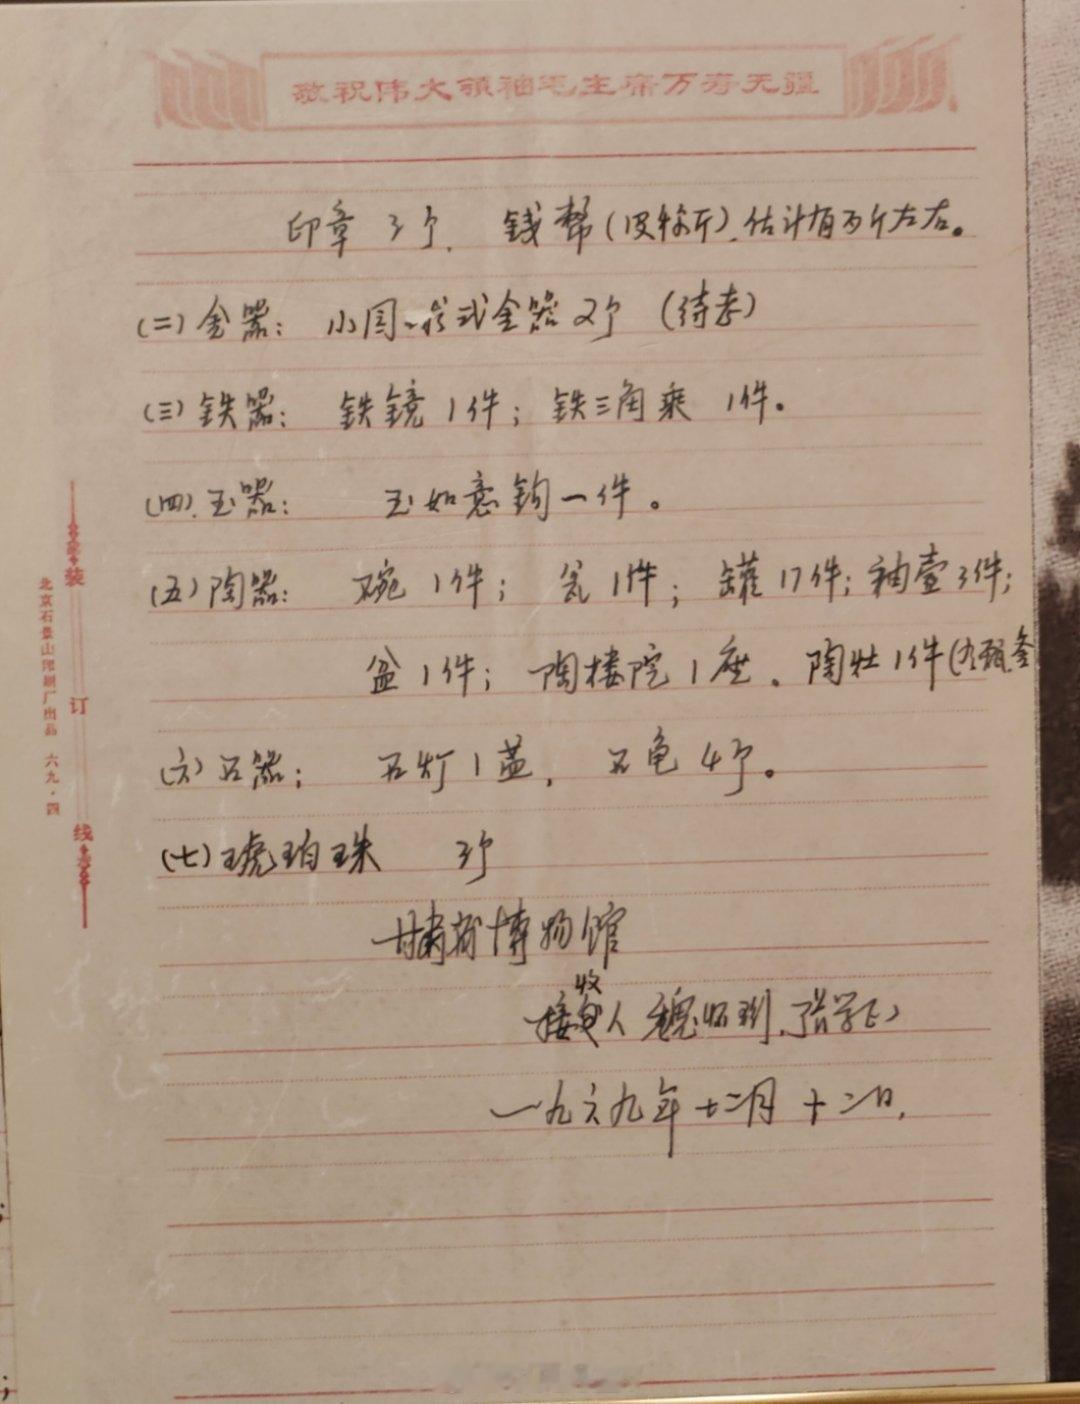 敬祝伟大领袖毛主席万寿无疆
印章 3个. 钱幣(没称斤).估计有百斤左右。
(二)金器: 小园 式金器2个 (待考)
(三)铁器: 铁镜1件; 铁三角 1件。
(四).玉器: 玉如意钩一件。
(五)陶器: 碗1件; 瓮1件; 罐17件; 釉壶3件;
盆1件; 陶楼院1座. 陶灶1件(
(六)石器; 石灯1盏, 石龟4个。
(七)琥珀珠 3个
甘肃省博物馆
接收人 魏怀珩.张学正
一九六九年十二月十二日.
装
订
线
北京石景山印刷厂出品 六九·四